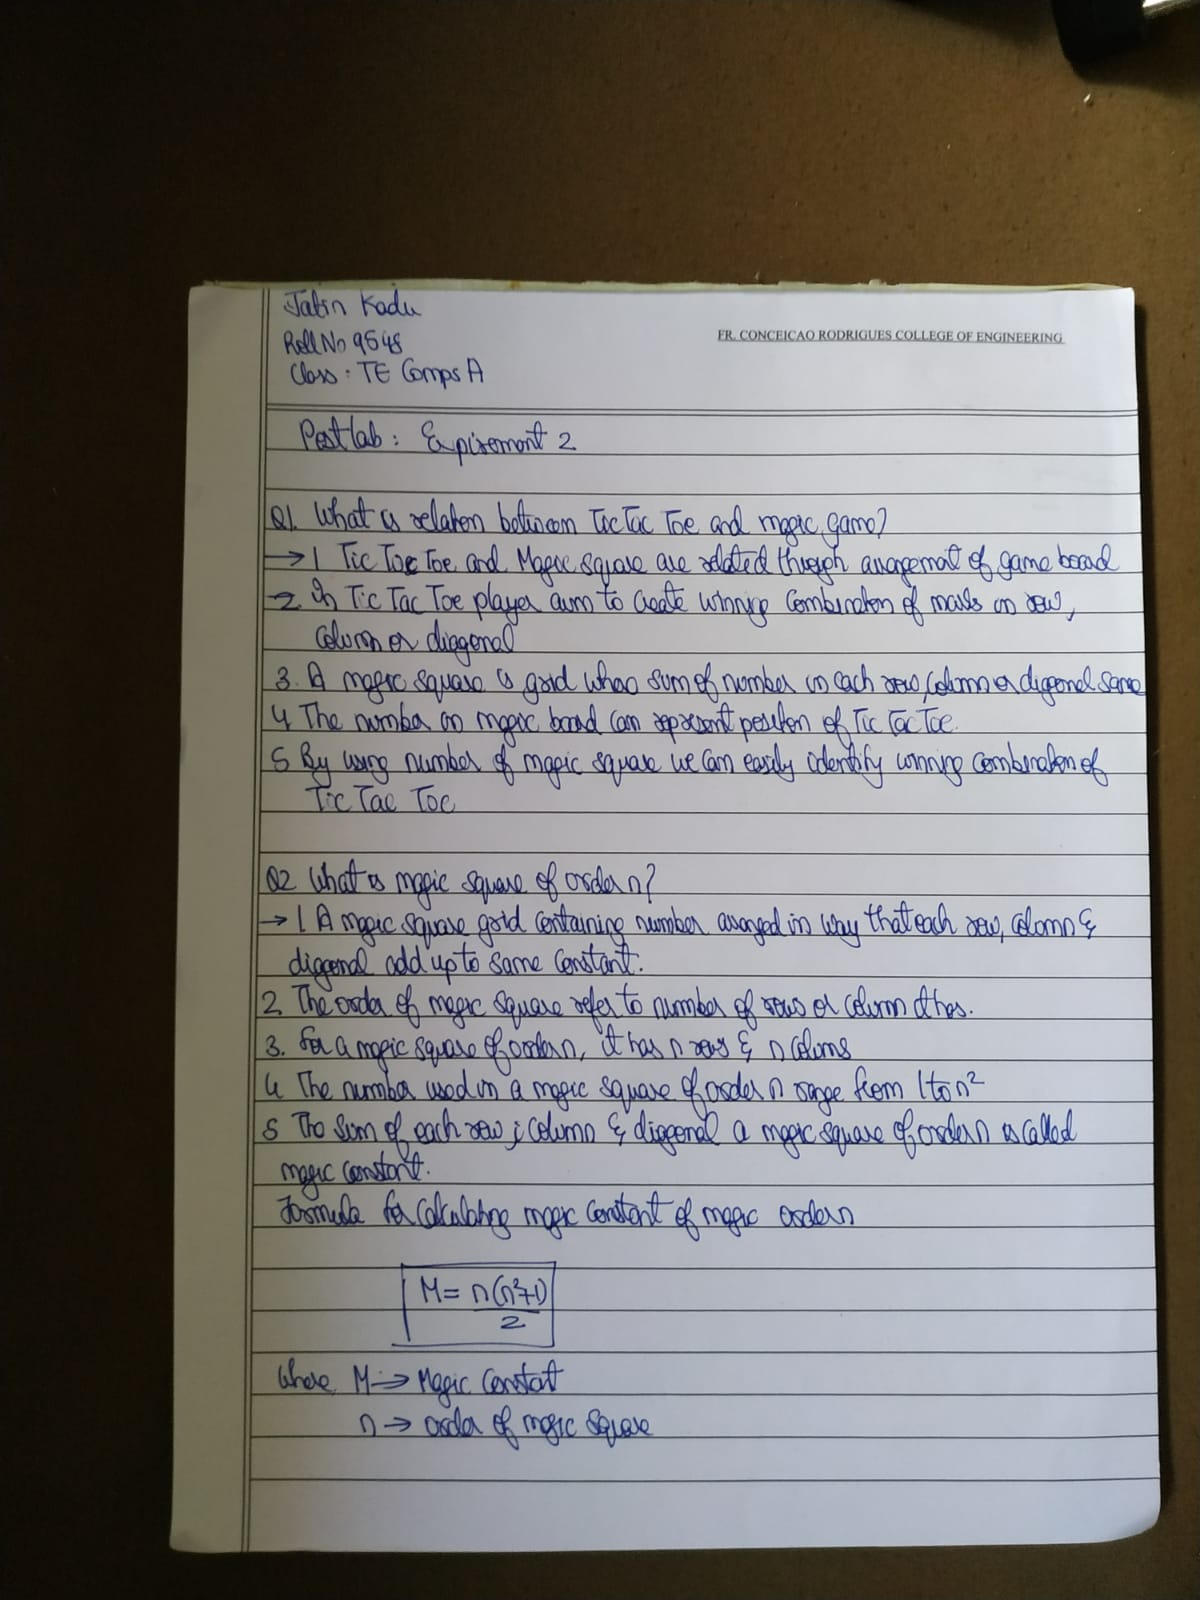 Jatin Kadu
Roll No 9548
FR. CONCEICAO RODRIGUES COLLEGE OF ENGINEERING
Class: TE Comps A
Postlab: Expirement 2
Q1. What is relation between Tic Tac Toe and magic game?
→ 1 Tic Tac Toe and Magic square are related through arrangement of game board
2. In Tic Tac Toe player aim to create winning combination of marks in row,
column or diagonal
3. A magic square is grid whoo sum of number in each row, column or diagonal same
4 The number on magic board can represent position of Tic Tac Toe.
5 By using number of magic square we can easily identify winning combination of
Tic Tac Toe
Q2 What is magic square of order n?
→ 1 A magic square grid containing number arranged in way that each row, column &
diagonal add up to same constant.
2. The order of magic square refer to number of rows or column it has.
3. For a magic square of order n, it has n rows & n colums
4 The number used in a magic square of order n range from 1 to n²
5 The sum of each row ; column & diagonal a magic square of order n is called
magic constant.
Formula for calculating magic constant of magic order n
M = n(n²+1)
2
where M → Magic Constat
n → order of magic square